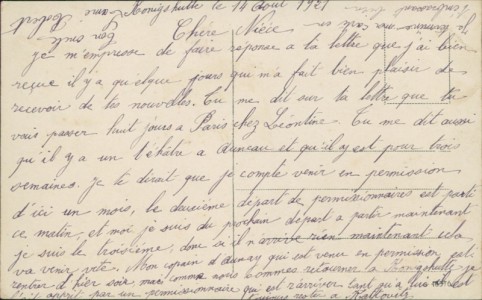 Konigshutte le 14 Aout 1921
Chère Nièce
je m'empresse de faire réponse a ta lettre que j'ai bien
reçue il y a quelque jours qui m'a fait bien plaisir de
recevoir de tes nouvelles. Tu me dit sur ta lettre que tu
vais passer huit jours a Paris chez Léontine. Tu me dit aussi
qu'il y a un théâtre a Auneau et qu'il y est pour trois
semaines. je te dirait que je compte venir en permission
d'ici un mois, le deuxième départ de permissionnaires est parti
ce matin, et moi je suis du prochain départ a partir maintenant
je suis le troisième, donc si il n'arrive rien maintenant cela
va venir vite. Mon copain d'Auneau qui est venu en permission est
rentrer d'hier soir, mais comme nous sommes retourner a Konigshutte
par un permissionnaire qui est arriver
toujours reste a